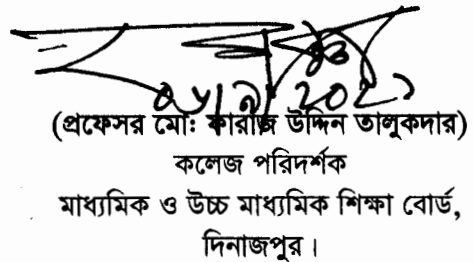 (প্রফেসর মোঃ ফারাজ উদ্দিন তালুকদার)
কলেজ পরিদর্শক
মাধ্যমিক ও উচ্চ মাধ্যমিক শিক্ষা বোর্ড,
দিনাজপুর।